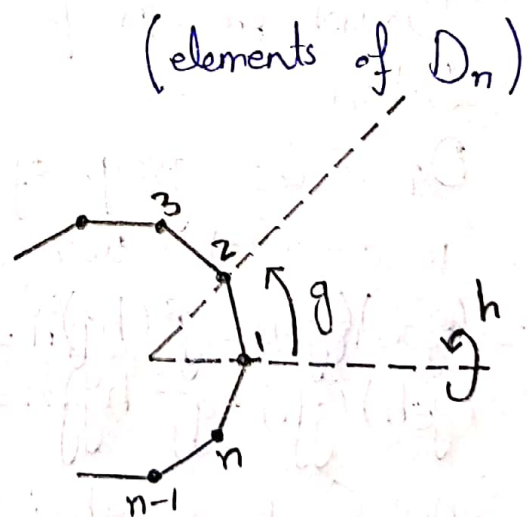 (elements of Dn)
3
2
g
h
1
n
n-1